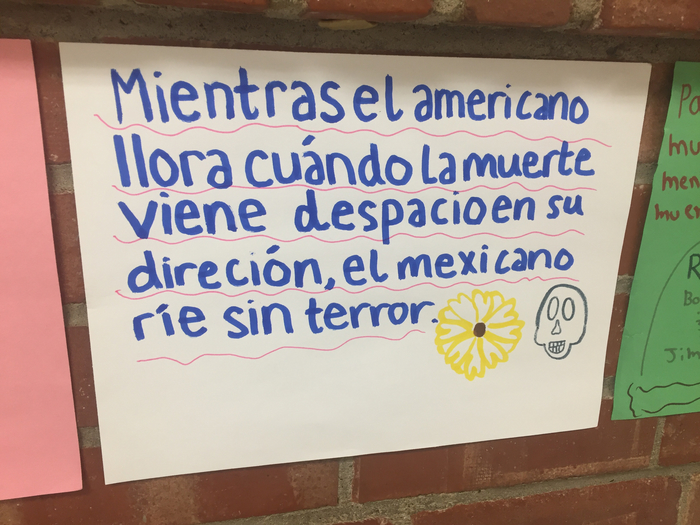 Mientras el americano
llora cuándo la muerte
viene despacio en su
direción, el mexicano
ríe sin terror.
Po
mu
men
muer
R
Bo
Jim